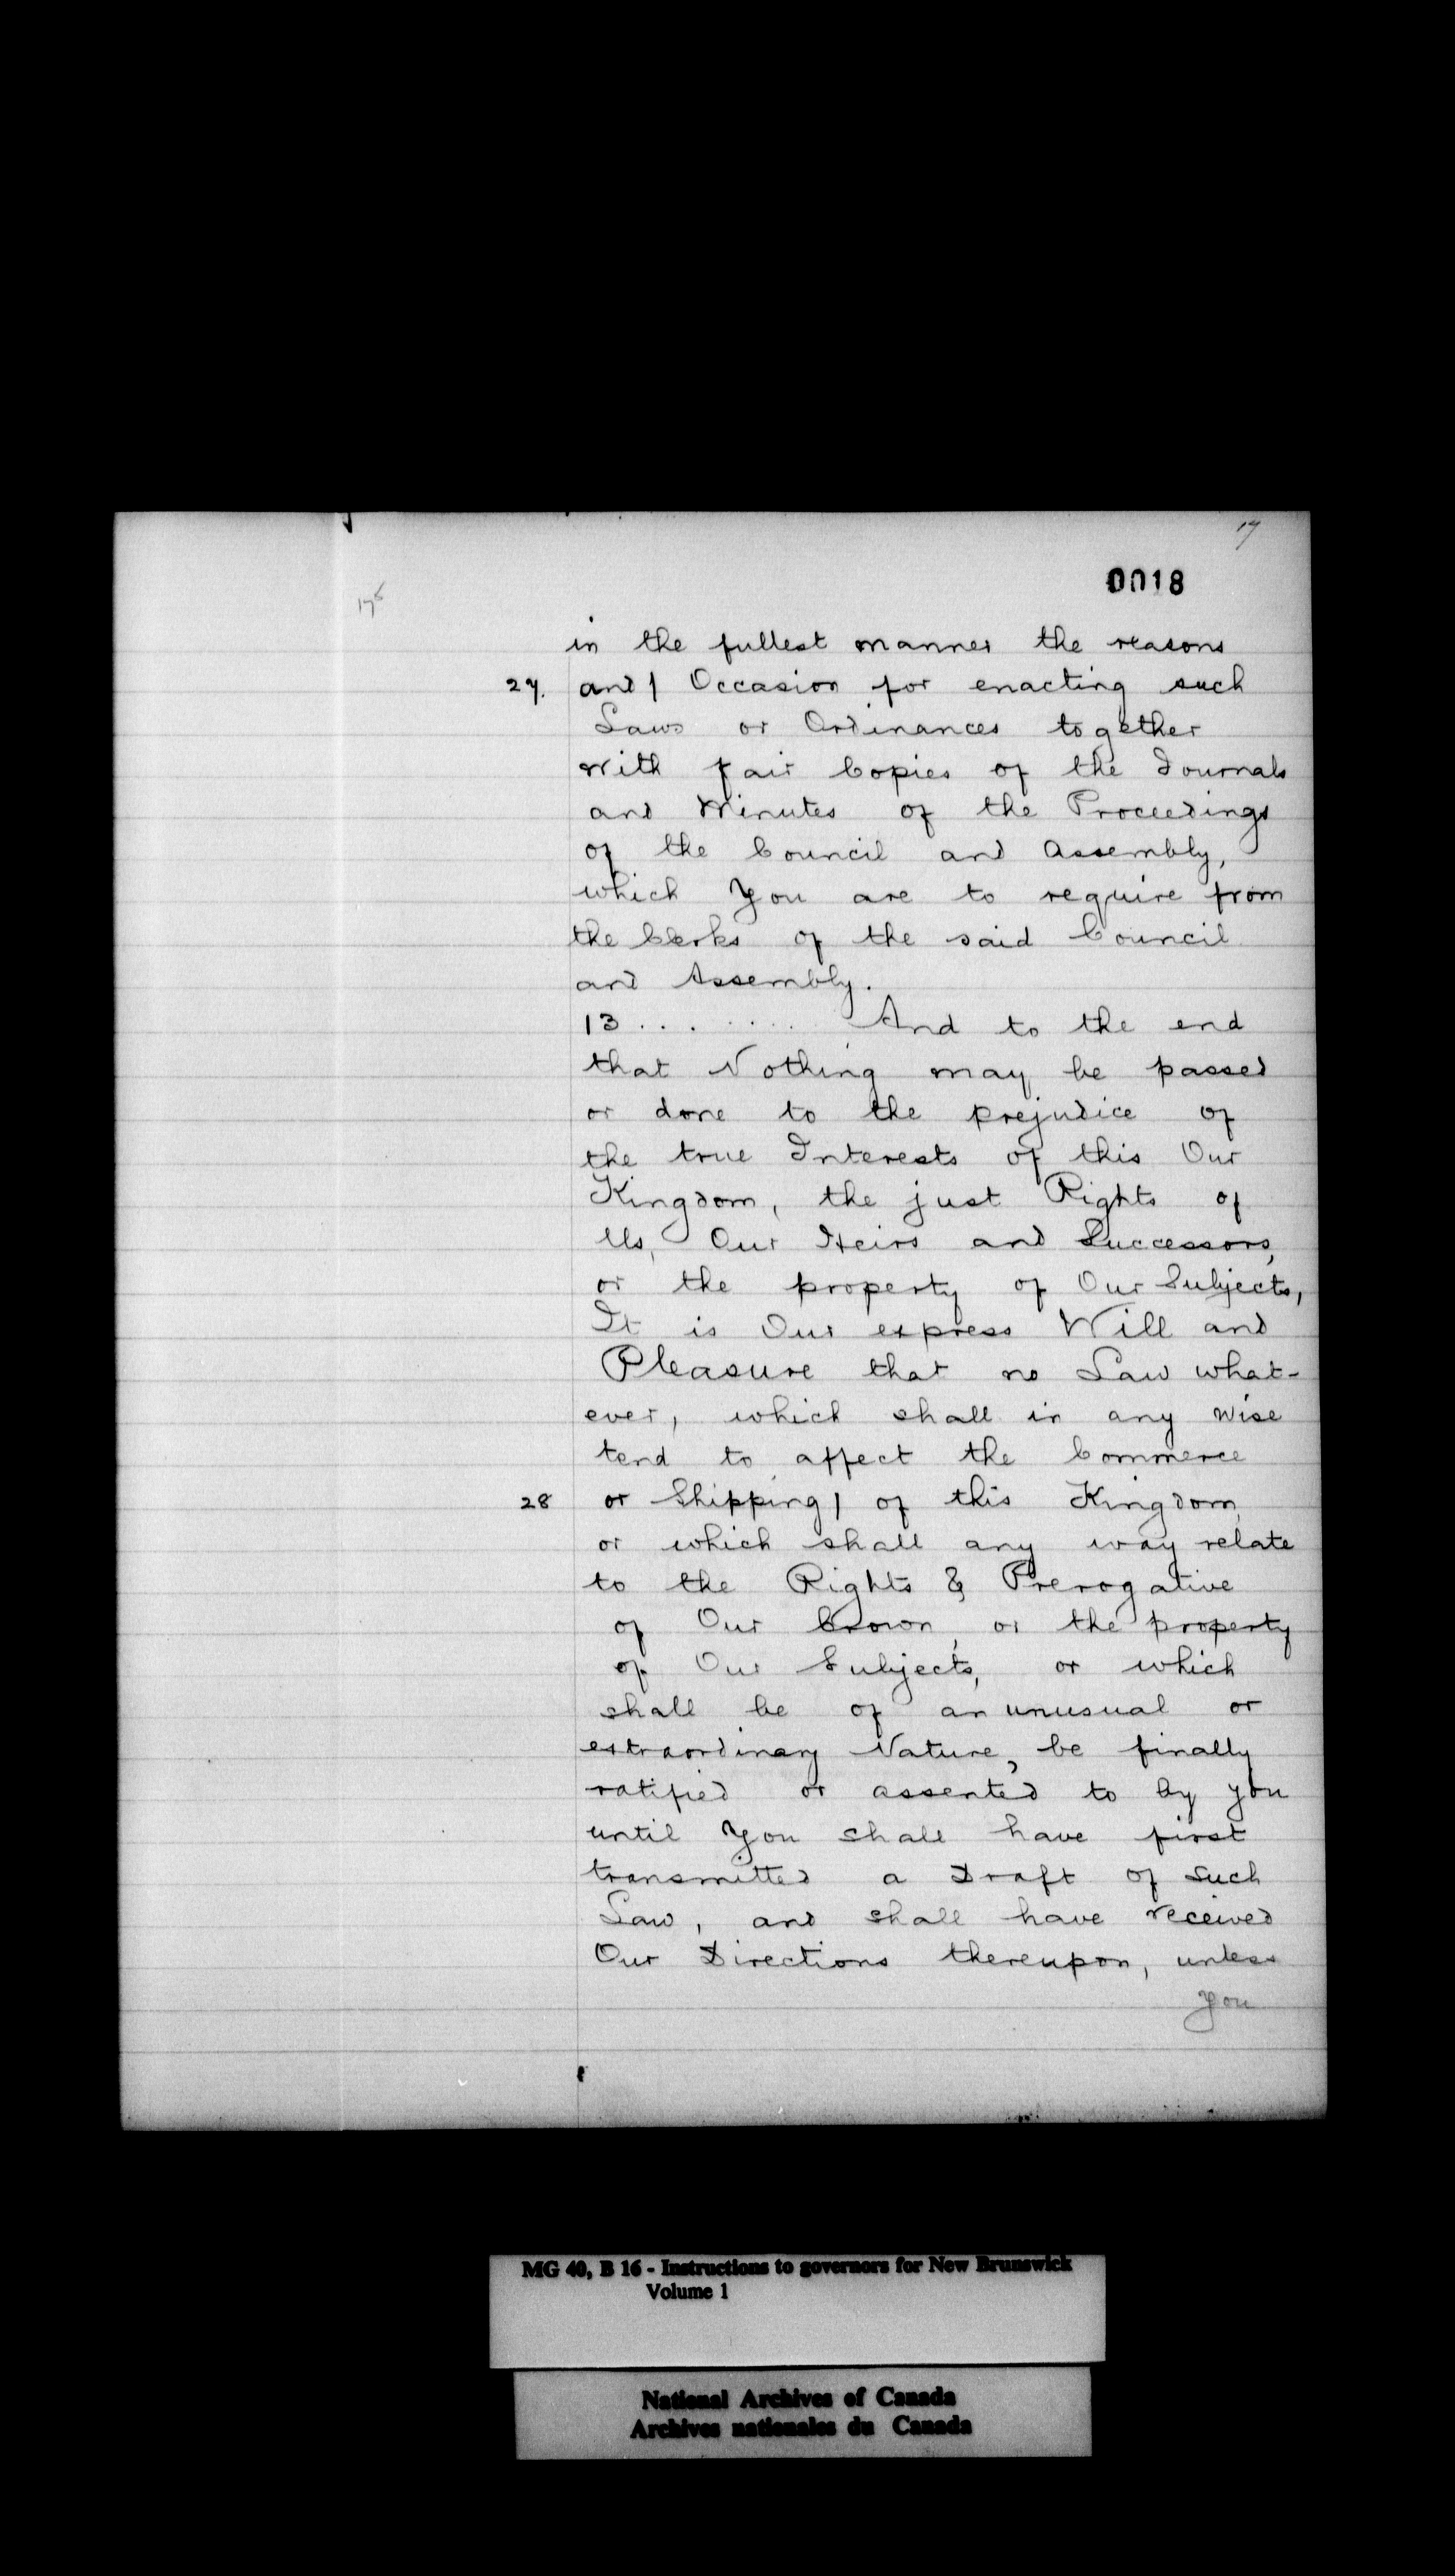 17
0018
in the fullest manner the reasons
27. and | Occasion for enacting such
Laws or Ordinances together
with fair Copies of the Journals
and Minutes of the Proceedings
of the Council and Assembly,
which You are to require from
the Clerks of the said Council
and Assembly.
13 . . . . . . . And to the end
that Nothing may be passed
or done to the prejudice of
the true Interests of this Our
Kingdom, the just Rights of
Us, Our Heirs and Successors,
or the property of Our Subjects,
It is Our express Will and
Pleasure that no Law what-
ever, which shall in any wise
tend to affect the Commerce
28 or Shipping | of this Kingdom,
or which shall any way relate
to the Rights & Prerogative
of Our Crown, or the property
of Our Subjects, or which
shall be of an unusual or
extraordinary Nature, be finally
ratified or assented to by you
until You shall have first
transmitted a Draft of such
Law, and shall have received
Our Directions thereupon, unless
you
MG 40, B 16 - Instructions to governors for New Brunswick
Volume 1
National Archives of Canada
Archives nationales du Canada